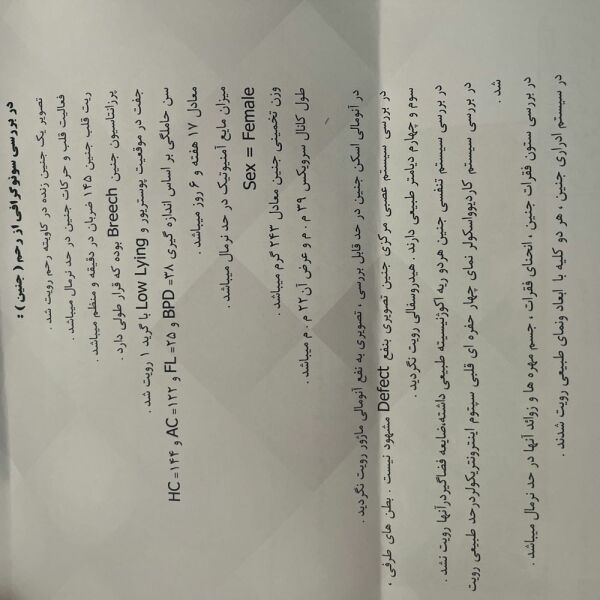 در بررسی سونوگرافی از رحم ( جنین ) :
تصویر یک جنین زنده در کاویته رحم رویت شد .
فعالیت قلب و حرکات جنین در حد نرمال میباشد .
ریت قلب جنین ۱۴۵ ضربان در دقیقه و منظم میباشد .
پرزانتاسیون جنین Breech بوده که قرار طولی دارد .
جفت در موقعیت پوستریور و Low Lying با گرید ۱ رویت شد .
سن حاملگی بر اساس اندازه گیری BPD =۳۸ و FL =۲۵ و AC =۱۲۲ و HC =۱۴۴
معادل ۱۷ هفته و ۶ روز میباشد .
میزان مایع آمنیوتیک در حد نرمال میباشد .
Sex = Female
وزن تخمینی جنین معادل ۲۴۳ گرم میباشد .
طول کانال سرویکس ۳۹ م . م و عرض آن ۲۲ م . م میباشد .
در آنومالی اسکن جنین در حد قابل بررسی ، تصویری به نفع آنومالی ماژور رویت نگردید .
در بررسی سیستم عصبی مرکزی جنین تصویری بنفع Defect مشهود نیست . بطن های طرفی ،
سوم و چهارم دیامتر طبیعی دارند . هیدروسفالی رویت نگردید .
در بررسی سیستم تنفسی جنین هردو ریه اکوژنیسیته طبیعی داشته،ضایعه فضاگیردرآنها رویت نشد .
در بررسی سیستم کاردیوواسکولر نمای چهار حفره ای قلبی سپتوم اینترونتریکولردرحد طبیعی رویت
شد .
در بررسی ستون فقرات جنین ، انحنای فقرات ، جسم مهره ها و زوائد آنها در حد نرمال میباشد .
در سیستم ادراری جنین ، هر دو کلیه با ابعاد ونمای طبیعی رویت شدند .